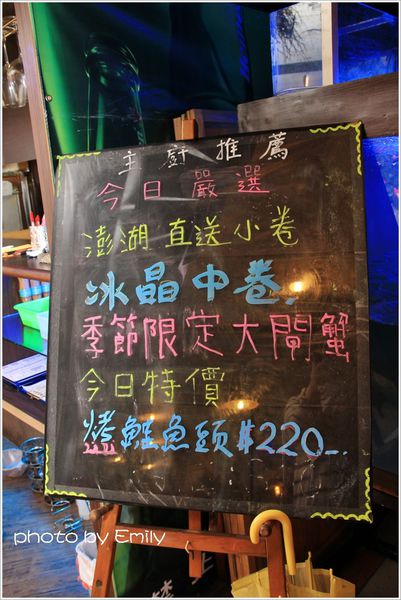 主廚推薦
今日嚴選
澎湖直送小卷
冰晶中卷,
季節限定大閘蟹
今日特價
烤鮭魚頭$220-.
photo by Emily